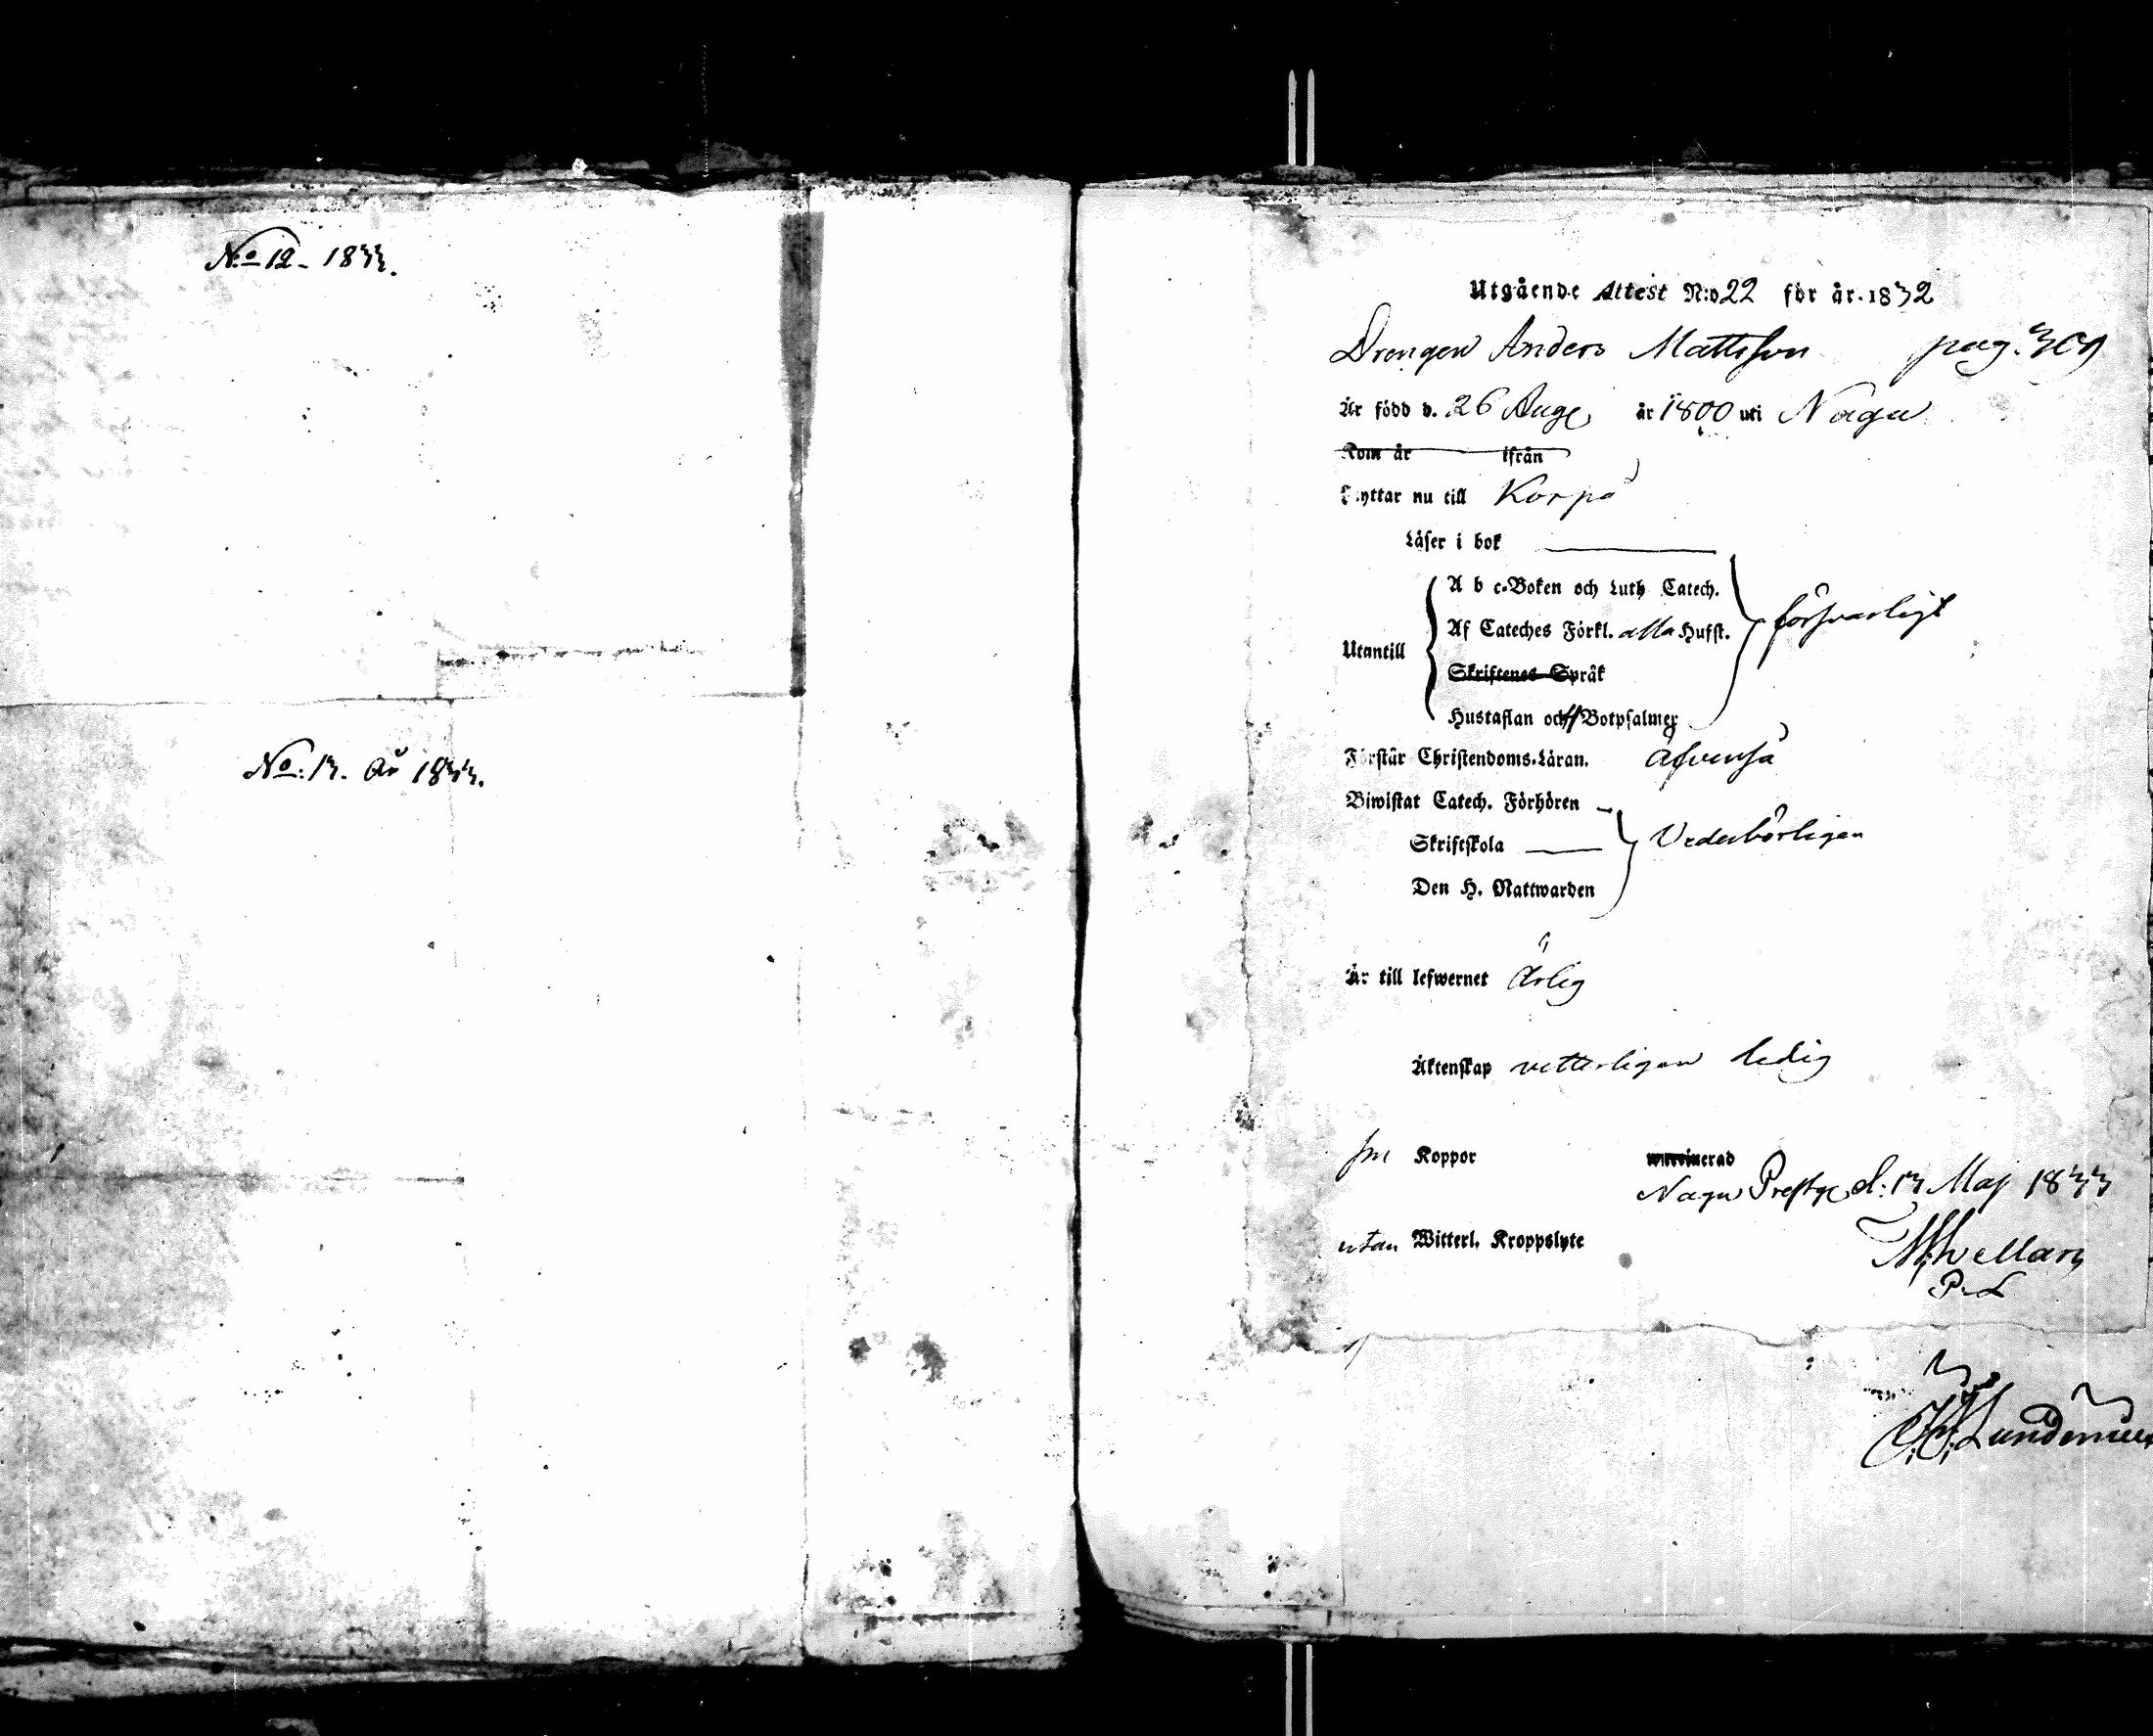 No 12 - 1833.
No: 13. År 1833.
Utgående Attest N:o 22 för år 1832
Drengen Anders Mattsson pag. 309
Är född d. 26 Aug. år 1800 uti Nagu
Kom år ifrån
Flyttar nu till Korpo
Läser i bok
A b c-Boken och Luth Catech.
Af Cateches Förkl. alla Hufst. försvarligt
Utantill
Skriftenes Språk
Hustaflan och Botpsalmer
Förstår Christendoms-Läran. äfvenså
Biwistat Catech. Förhören
Skriftskola Vederbörligen
Den H. Nattwarden
Är till lefwernet Ärlig
Äktenskap vetterligen ledig
Koppor
Nagu Prestg. d: 13 Maj 1833
utan Witterl. Kroppslyte
P. L
Lundenius